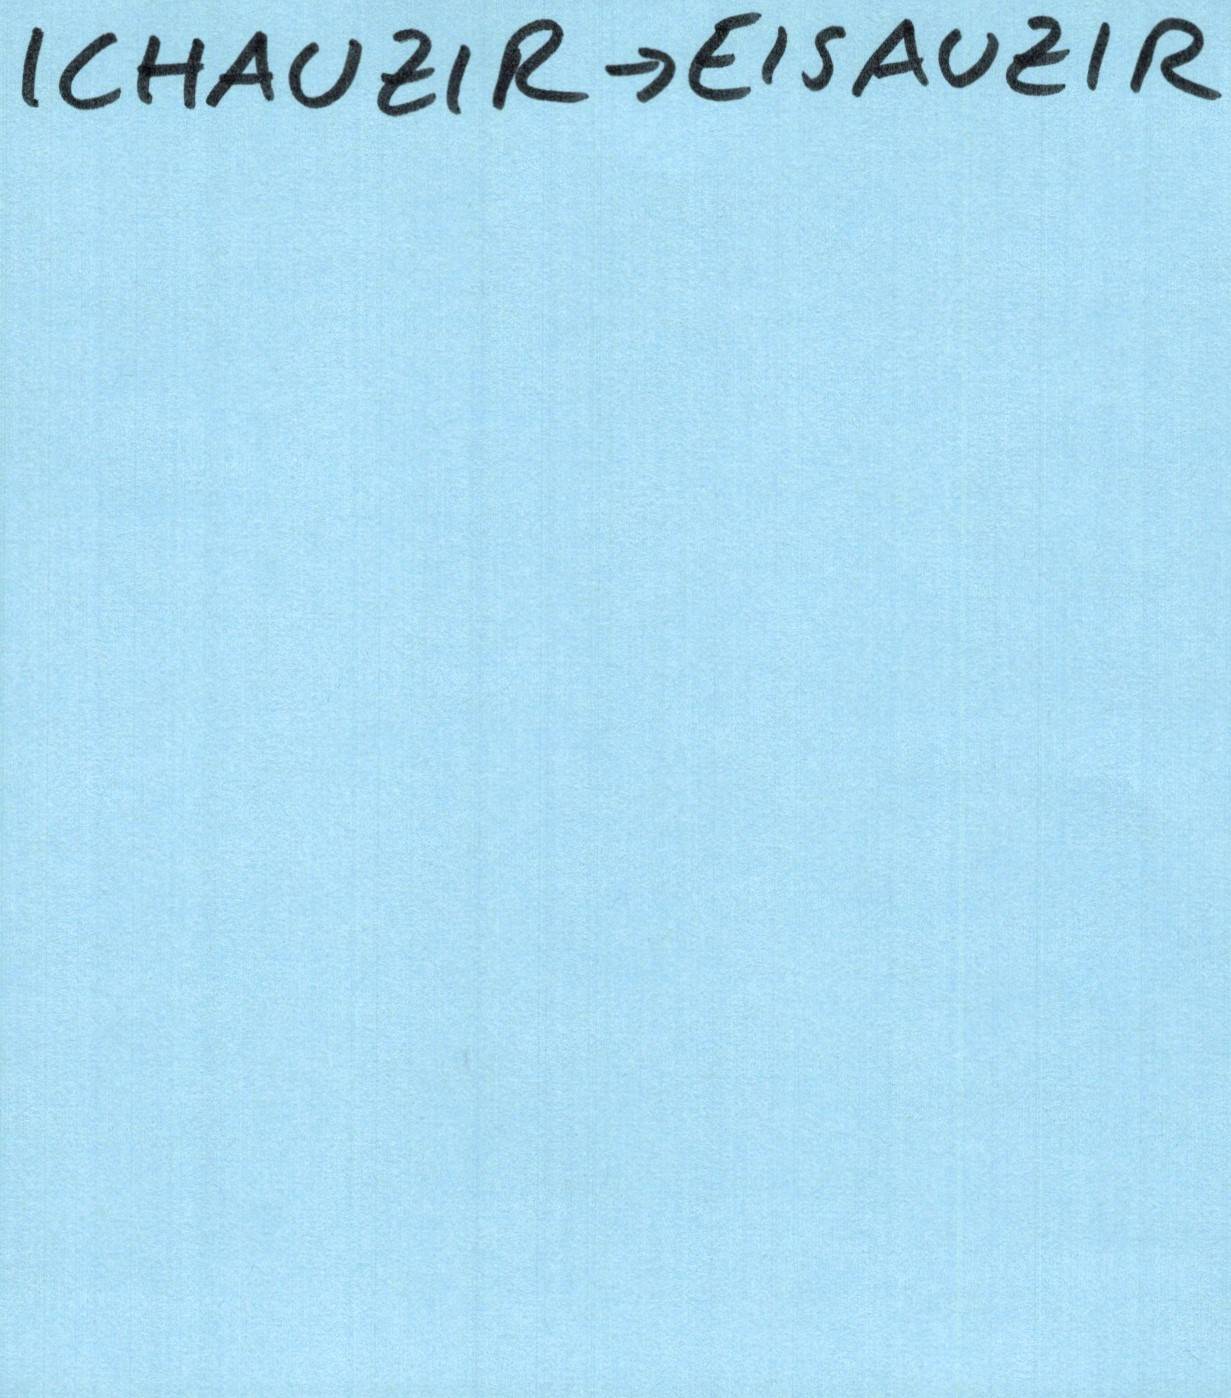 ICHAUZIR → EISAUZIR